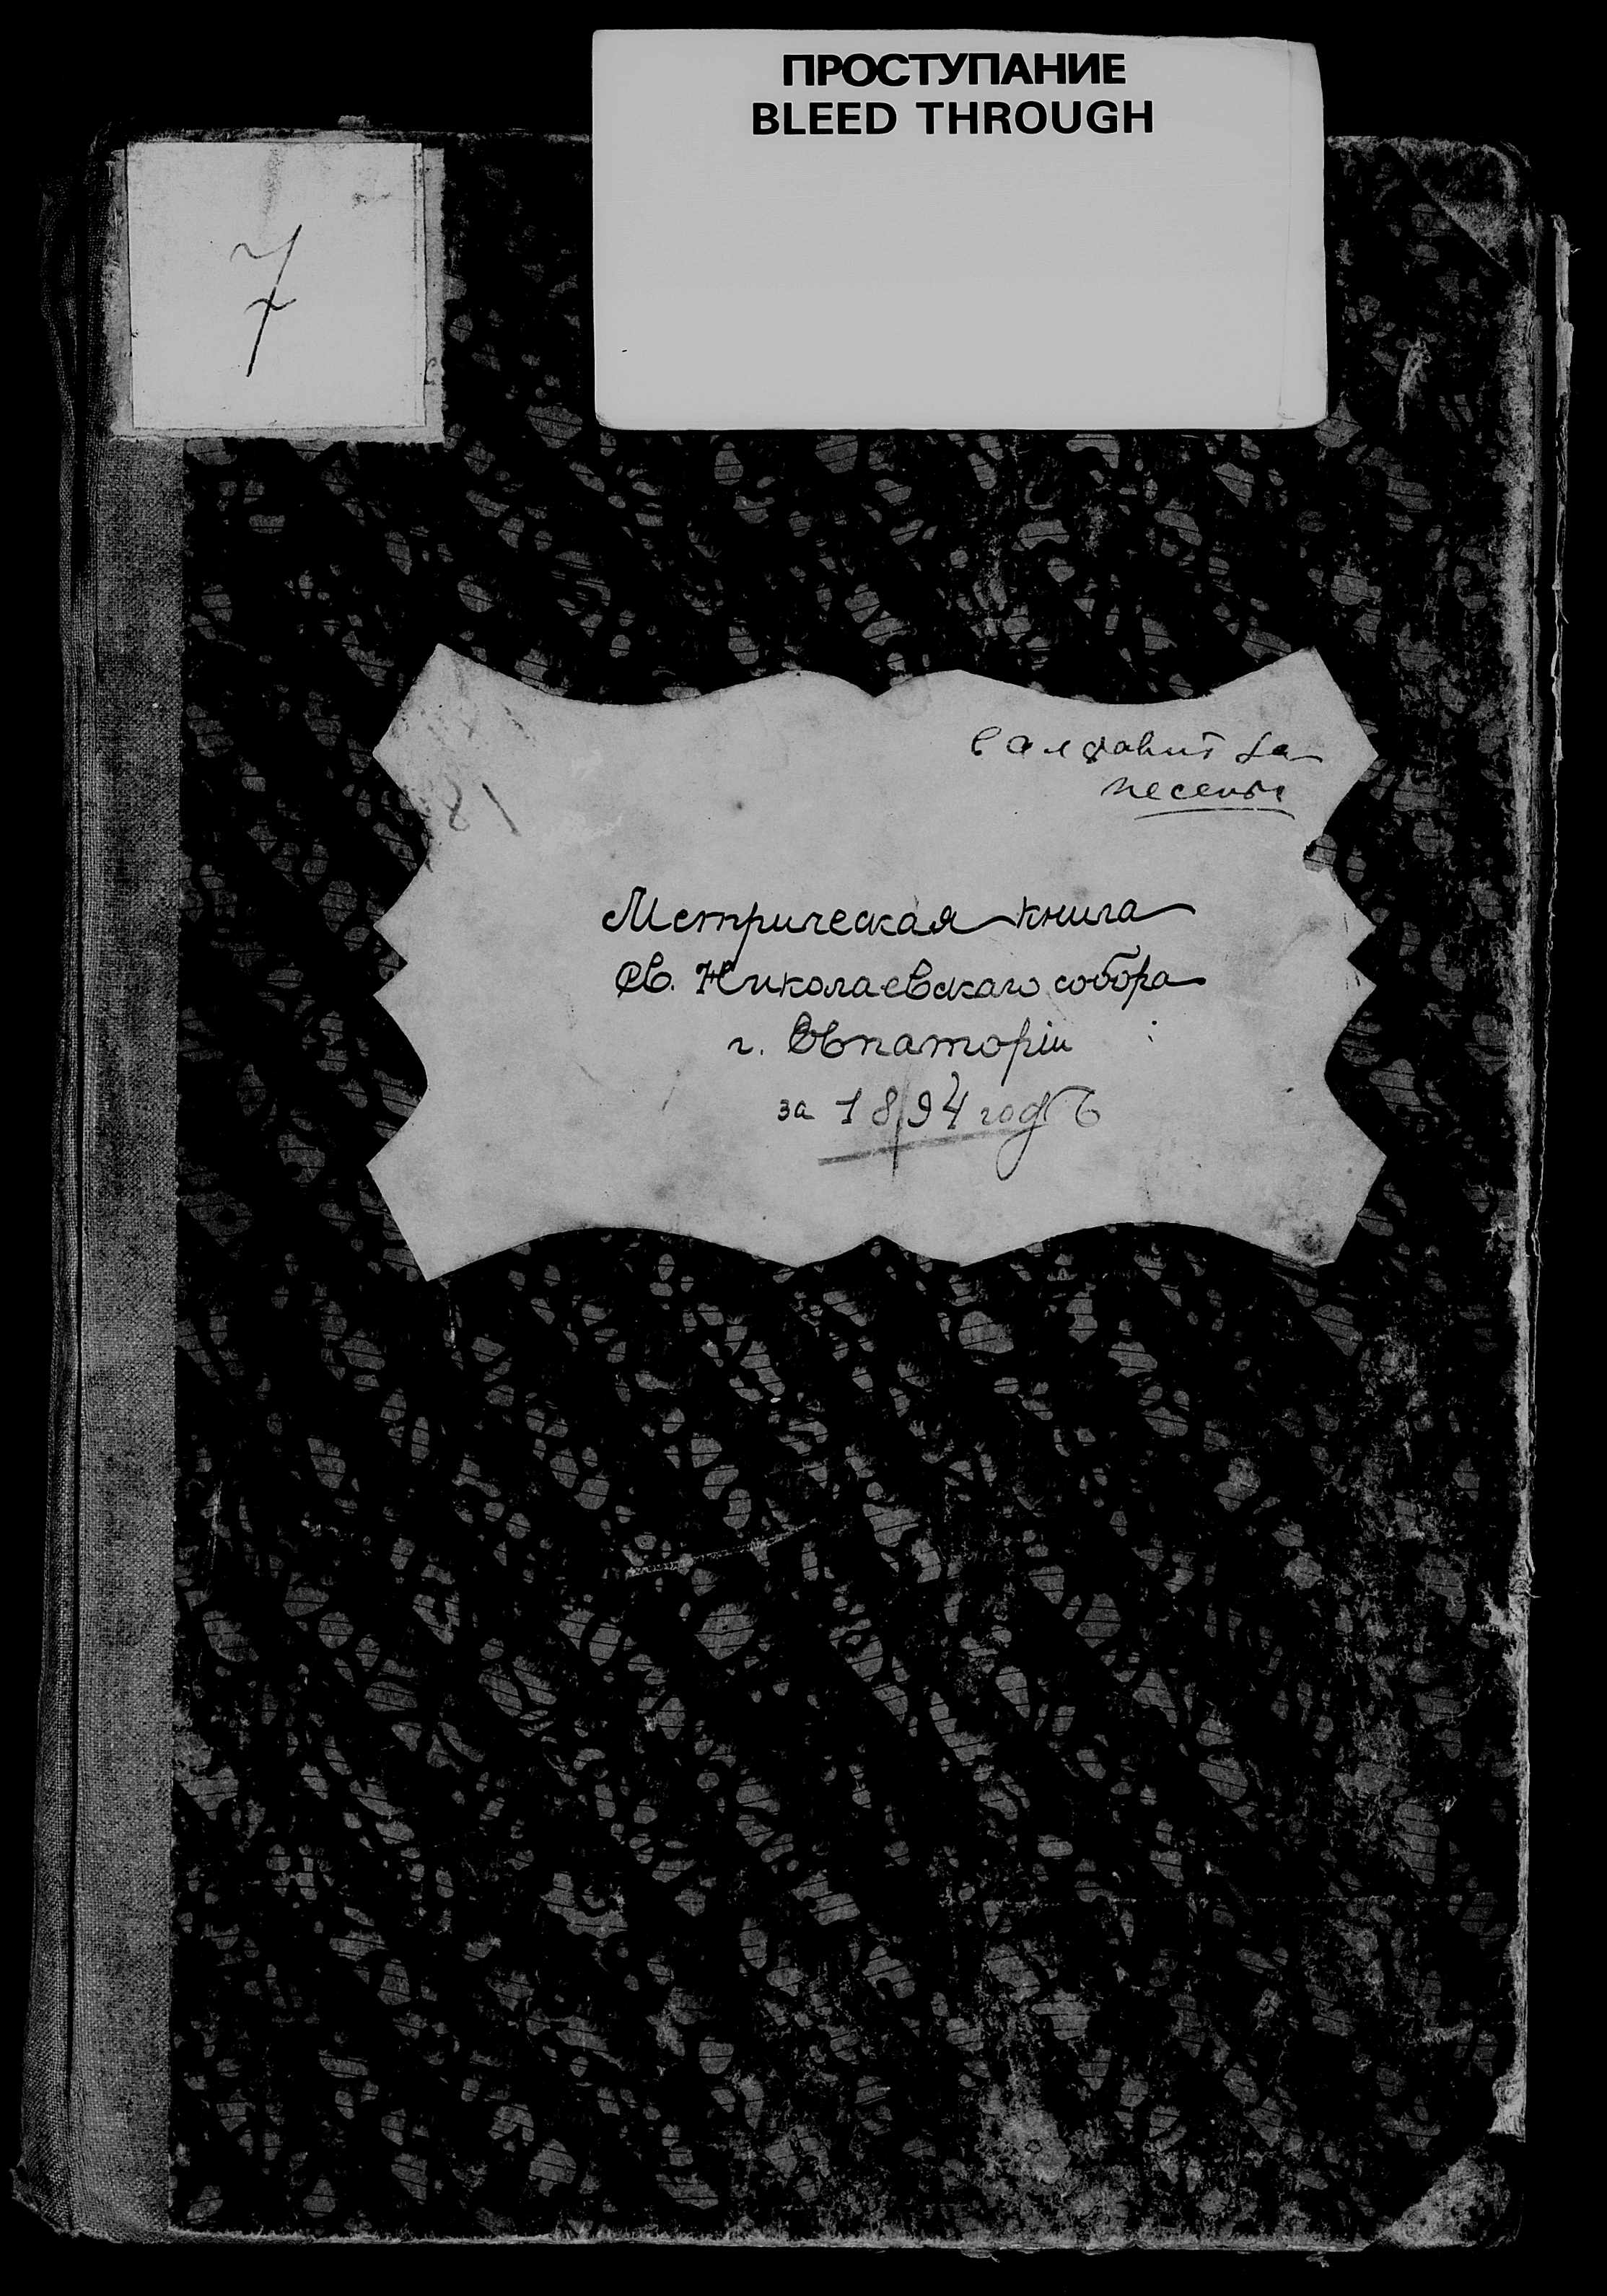 ПРОСТУПАНИЕ
BLEED THROUGH
7
в алфавит за
несены
Метрическая книга
Св. Николаевскаго собора
г. Евпаторіи
за 1894 годъ